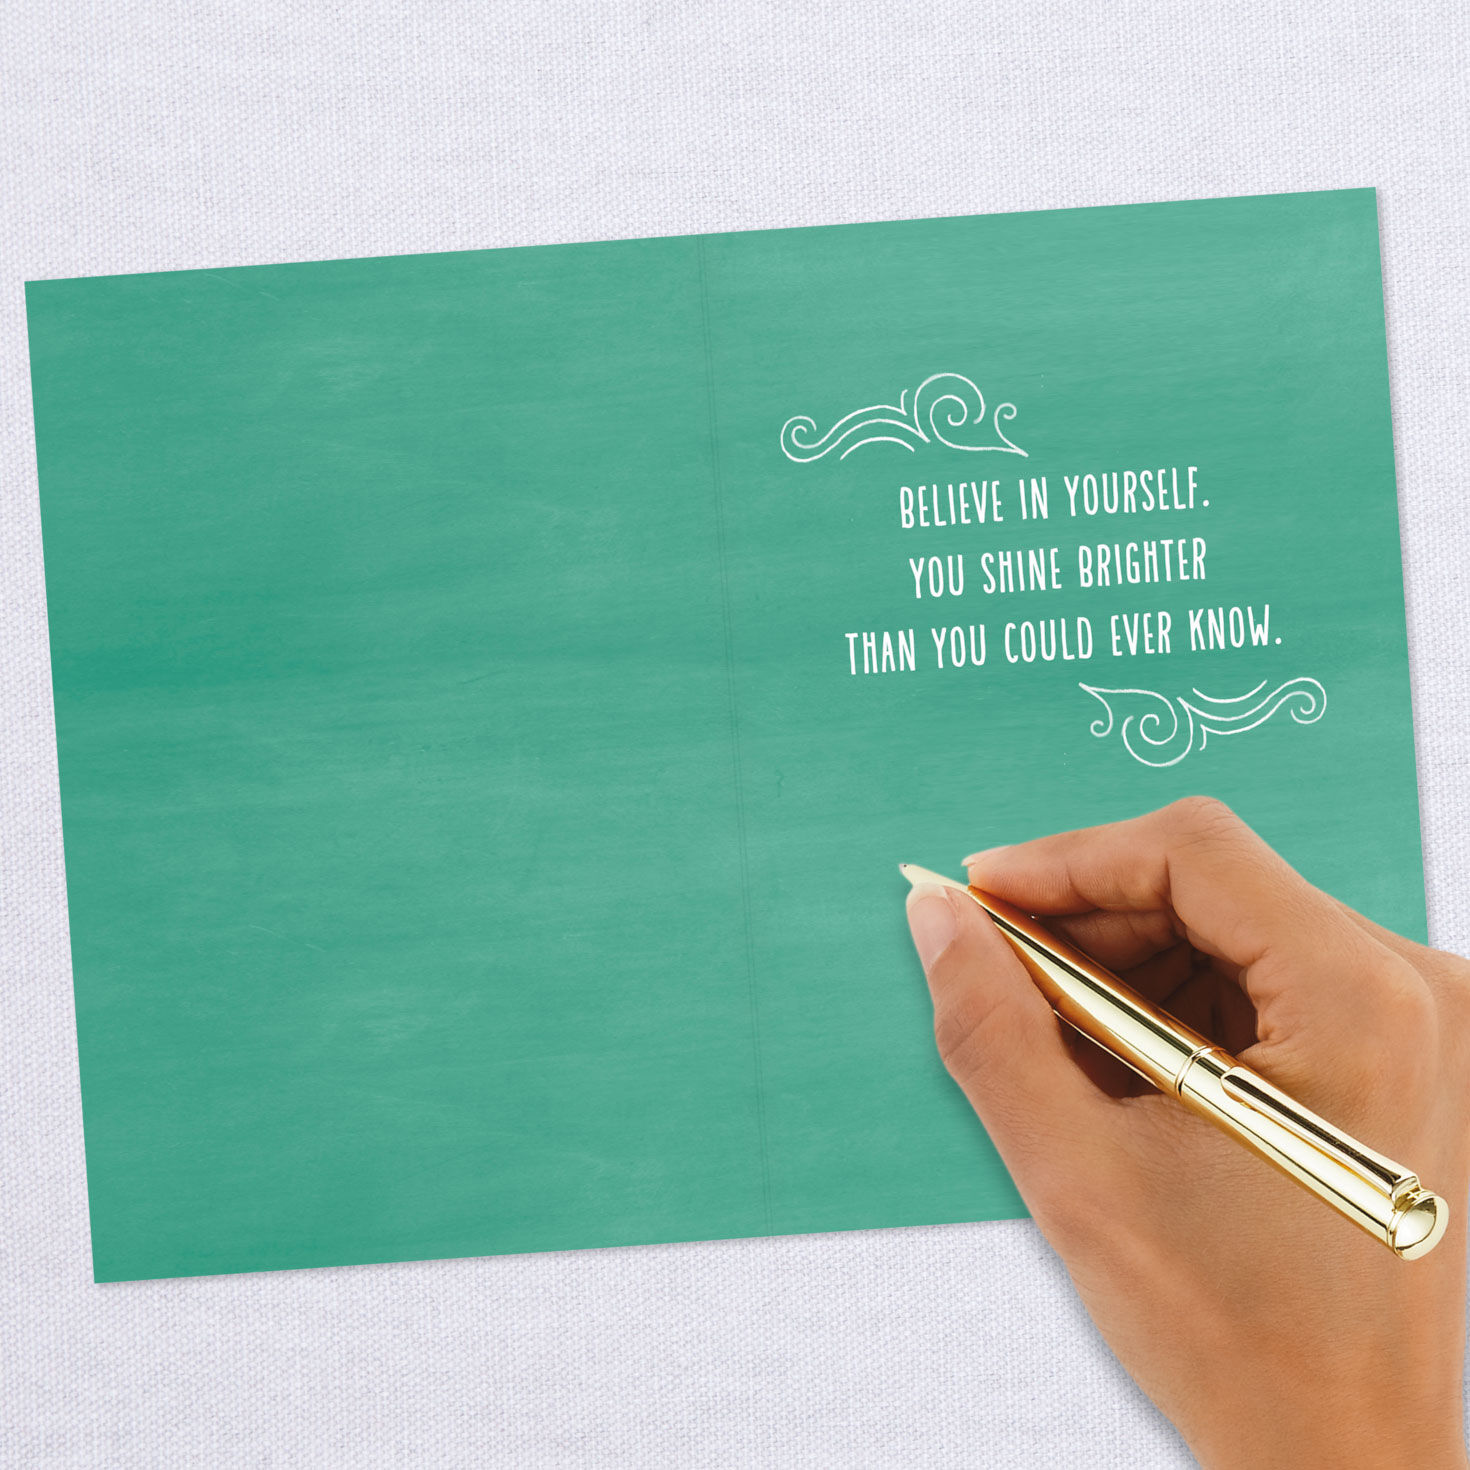 BELIEVE IN YOURSELF.
YOU SHINE BRIGHTER
THAN YOU COULD EVER KNOW.